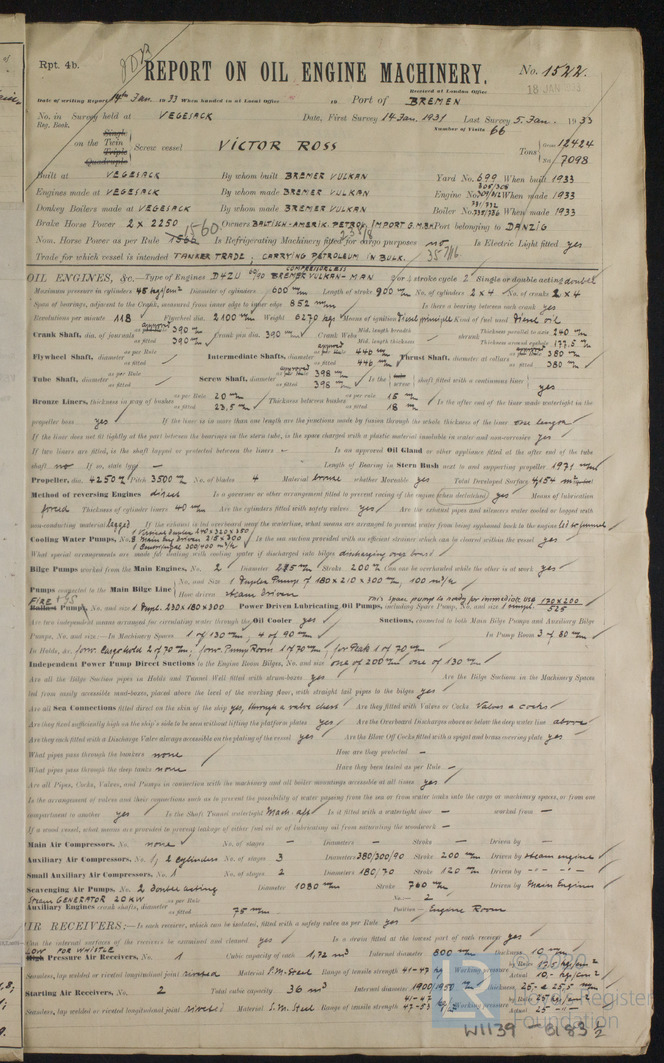 Rpt. 4b.
REPORT ON OIL ENGINE MACHINERY.
No. 1522
Received at London Office
18 JAN
Date of writing Report 14th Jan. 1933 When handed in at Local Office 19 Port of BREMEN
No. in Reg. Book. Survey held at VEGESACK Date, First Survey 14 Jan. 1931 Last Survey 5. Jan. 1933
Number of Visits 66
on the Single Twin Triple Quadruple Screw vessel VICTOR ROSS Tons Gross 12424 Net 7098
Built at VEGESACK By whom built BREMER VULKAN Yard No. 699 When built 1933
Engines made at VEGESACK By whom made BREMER VULKAN Engine No. When made 1933
Donkey Boilers made at VEGESACK By whom made BREMER VULKAN Boiler No. When made 1933
Brake Horse Power 2 x 2250 Owners BALTISCH-AMERIK. PETROL. IMPORT G.M.B.H. Port belonging to DANZIG
Nom. Horse Power as per Rule 1560 Is Refrigerating Machinery fitted for cargo purposes no Is Electric Light fitted yes
Trade for which vessel is intended TANKER TRADE, CARRYING PETROLEUM IN BULK.
OIL ENGINES, &c.—Type of Engines COMPRESSORLESS BREMER VULKAN-MAN 2 or 4 stroke cycle 2 Single or double acting double
Maximum pressure in cylinders 45 kg/cm² Diameter of cylinders 600 mm Length of stroke 900 mm No. of cylinders 2 x 4 No. of cranks 2 x 4
Span of bearings, adjacent to the Crank, measured from inner edge to inner edge 852 mm Is there a bearing between each crank yes
Revolutions per minute 118 Flywheel dia. 2100 mm Weight 6270 kgs Means of ignition Diesel principle Kind of fuel used Diesel oil
Crank Shaft, dia. of journals as fitted 390 mm Crank pin dia. 390 mm Crank Webs Mid. length breadth Mid. length thickness shrunk Thickness parallel to axis 240 mm Thickness around eyehole 177,5 mm
Flywheel Shaft, diameter as per Rule as fitted Intermediate Shafts, diameter 440 mm as fitted 440 mm Thrust Shaft, diameter at collars 380 mm as fitted 380 mm
Tube Shaft, diameter as per Rule as fitted Screw Shaft, diameter 398 mm as fitted 398 mm Is the screw shaft fitted with a continuous liner yes
Bronze Liners, thickness in way of bushes as per Rule 20 mm as fitted 23,5 mm Thickness between bushes as per rule 15 mm as fitted 18 mm Is the after end of the liner made watertight in the
propeller boss yes If the liner is in more than one length are the junctions made by fusion through the whole thickness of the liner one length
If the liner does not fit tightly at the part between the bearings in the stern tube, is the space charged with a plastic material insoluble in water and non-corrosive yes
If two liners are fitted, is the shaft lapped or protected between the liners - Is an approved Oil Gland or other appliance fitted at the after end of the tube
shaft no If so, state type - Length of Bearing in Stern Bush next to and supporting propeller 1971 mm
Propeller, dia. 4250 Pitch 3500 No. of blades 4 Material bronze whether Moveable yes Total Developed Surface 4,154 m²
Method of reversing Engines direct Is a governor or other arrangement fitted to prevent racing of the engine when declutched yes Means of lubrication
forced Thickness of cylinder liners 40 mm Are the cylinders fitted with safety valves yes Are the exhaust pipes and silencers water cooled or lagged with
non-conducting material lagged If the exhaust is led overboard near the waterline, what means are arranged to prevent water being syphoned back to the engine led to funnel
Cooling Water Pumps, No. Is the sea suction provided with an efficient strainer which can be cleared within the vessel yes
What special arrangements are made for dealing with cooling water if discharged into bilges discharging over board
Bilge Pumps worked from the Main Engines, No. 2 Diameter 275 mm Stroke 200 Can one be overhauled while the other is at work yes
Pumps connected to the Main Bilge Line No. and Size 1 Duplex Pump of 180 x 210 x 300 mm, 100 m³/h
How driven steam driven
Ballast Pumps, No. and size 1 Dupl. 220 x 180 x 300 Power Driven Lubricating Oil Pumps, including Spare Pump, No. and size
This spare pump is ready for immediate use
Are two independent means arranged for circulating water through the Oil Cooler yes Suctions, connected to both Main Bilge Pumps and Auxiliary Bilge
Pumps, No. and size:— In Machinery Spaces 1 of 130 mm; 4 of 90 mm In Pump Room 3 of 80 mm
In Holds, &c. forw. Cargohold 2 of 70 mm; forw. Pump Room 1 of 70 mm; for Peak 1 of 70 mm
Independent Power Pump Direct Suctions to the Engine Room Bilges, No. and size one of 200 mm one of 130 mm
Are all the Bilge Suction pipes in Holds and Tunnel Well fitted with strum-boxes yes Are the Bilge Suctions in the Machinery Spaces
led from easily accessible mud-boxes, placed above the level of the working floor, with straight tail pipes to the bilges yes
Are all Sea Connections fitted direct on the skin of the ship yes, through a valve chest Are they fitted with Valves or Cocks Valves & cocks
Are they fixed sufficiently high on the ship's side to be seen without lifting the platform plates yes Are the Overboard Discharges above or below the deep water line above
Are they each fitted with a Discharge Valve always accessible on the plating of the vessel yes Are the Blow Off Cocks fitted with a spigot and brass covering plate yes
What pipes pass through the bunkers none How are they protected -
What pipes pass through the deep tanks none Have they been tested as per Rule -
Are all Pipes, Cocks, Valves, and Pumps in connection with the machinery and all boiler mountings accessible at all times yes
Is the arrangement of valves and their connections such as to prevent the possibility of water passing from the sea or from water tanks into the cargo or machinery spaces, or from one
compartment to another yes Is the Shaft Tunnel watertight Mach. aft Is it fitted with a watertight door - worked from -
If a wood vessel, what means are provided to prevent leakage of either fuel oil or of lubricating oil from saturating the woodwork -
Main Air Compressors, No. none No. of stages - Diameters - Stroke - Driven by -
Auxiliary Air Compressors, No. 1, 2 cylinders No. of stages 3 Diameters 380/300/90 Stroke 200 mm Driven by steam engine
Small Auxiliary Air Compressors, No. 1 No. of stages 2 Diameters 180/70 Stroke 120 mm Driven by - " -
Scavenging Air Pumps, No. 2 double acting Diameter 1080 mm Stroke 760 mm Driven by Main Engines
Steam GENERATOR 20 KW
Auxiliary Engines crank shafts, diameter as per Rule as fitted 75 mm No. 2 Position Engine Room
AIR RECEIVERS:—Is each receiver, which can be isolated, fitted with a safety valve as per Rule yes
Can the internal surfaces of the receivers be examined and cleaned yes Is a drain fitted at the lowest part of each receiver yes
LOW FOR WHISTLE
High Pressure Air Receivers, No. 1 Cubic capacity of each 1,72 m³ Internal diameter 800 mm thickness 10 mm
Seamless, lap welded or riveted longitudinal joint riveted Material S.M. Steel Range of tensile strength 41-47 kg Working pressure Actual 10.- kg/cm²
Starting Air Receivers, No. 2 Total cubic capacity 36 m³ Internal diameter 1900/1950 mm thickness 25. & 25,5 mm
Seamless, lap welded or riveted longitudinal joint riveted Material S.M. Steel Range of tensile strength 47-53 kg Working pressure by Rules 25 kg/cm² Actual 25
© 2020
Lloyd's Register
Foundation
W1139-0183½